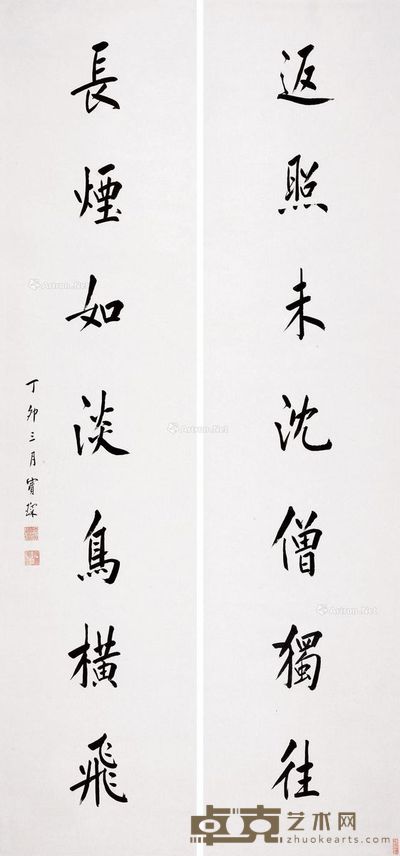 返照未沈僧獨往
長煙如淡鳥橫飛
丁卯三月寶琛
Artron.Net
Artron.Net
Artron.Net
卓克艺术网
zhuokearts.com